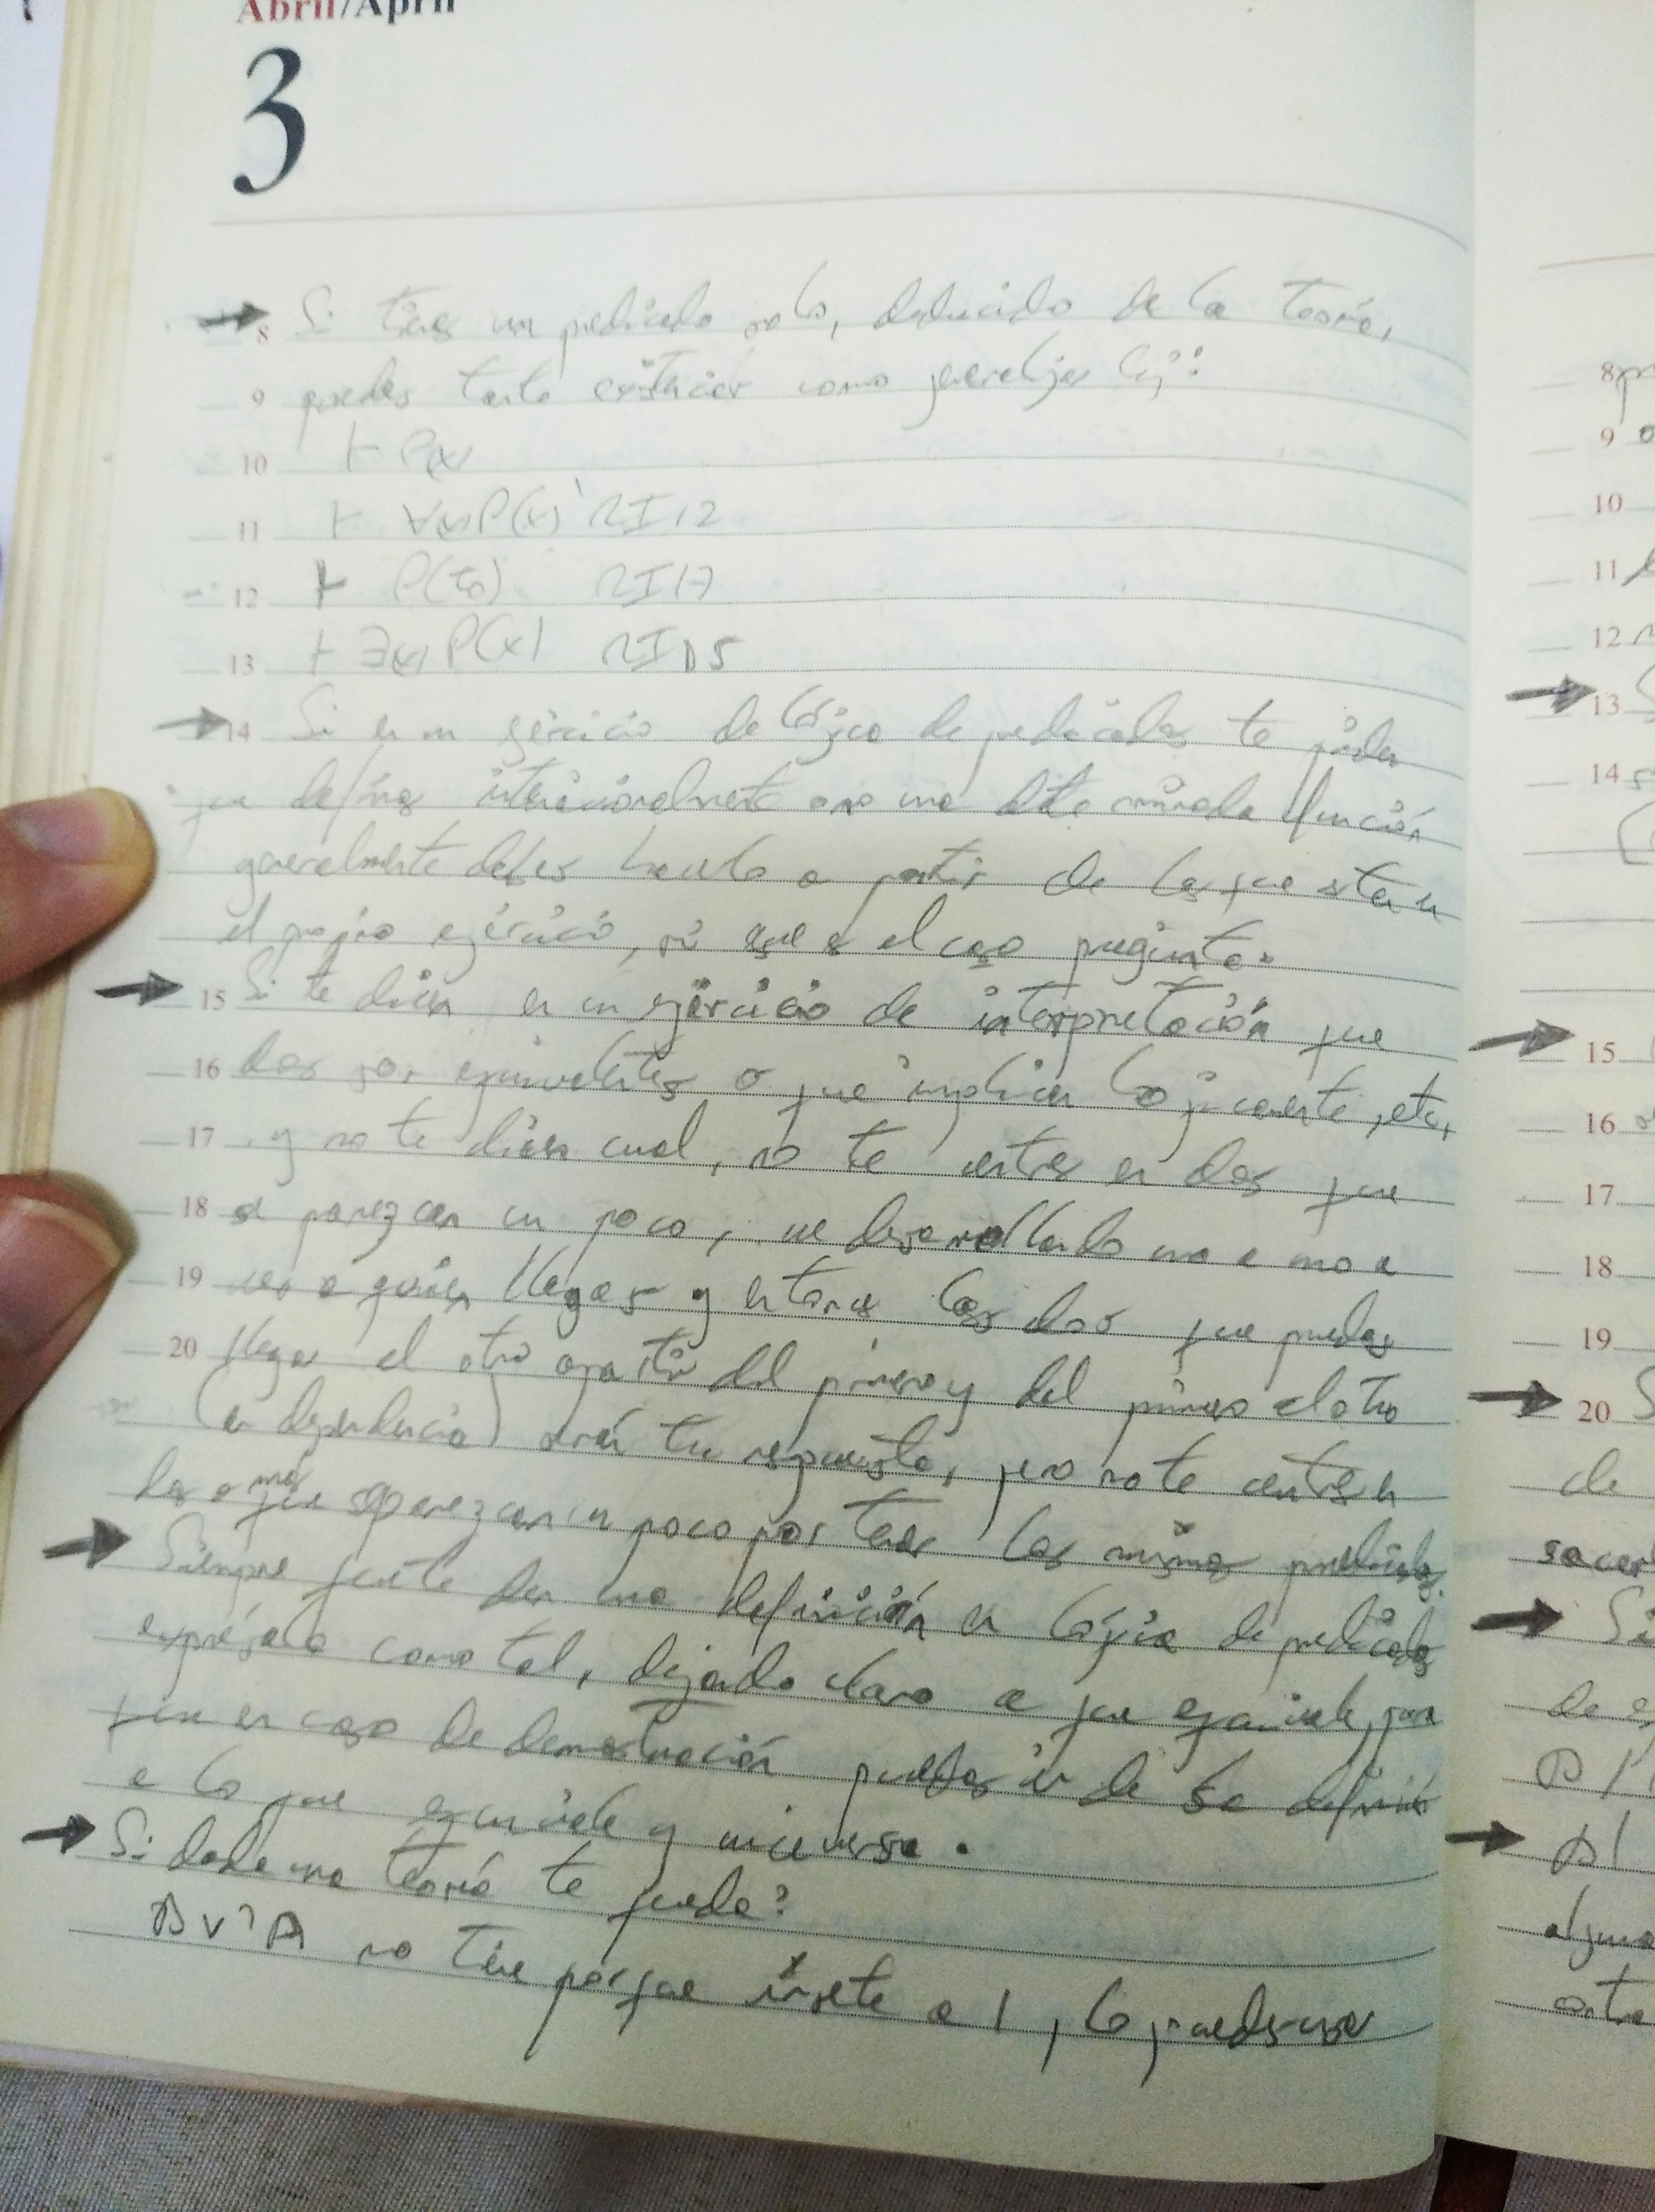 Abril/April
3
8 Si tienes un predicado solo, deducido de la teoría,
9 puedes tanto existenciar como generalizar
10 ⊢ P(x)
11 ⊢ ∀(x)P(x) RI12
12 ⊢ P(t0) RI17
13 ⊢ ∃(x)P(x) RID5
14 Si en un ejercicio de lógica de predicados te piden
que definas intencionalmente una determinada función
generalmente debes hacerlo a partir de las que están en
el propio ejercicio, si es el caso pregunta.
15 Si te dicen en un ejercicio de interpretación que
16 dos son equivalentes o que implican lógicamente, etc,
17 y no te dicen cual, no te centres en dos que
18 se parezcan un poco, ve desarrollando una a una a
19 ver a quien llegas y entonces las dos que puedas
20 llegar al otro a partir del primero y del primero al otro
(en dependencia) serán tu respuesta, pero no te centres en
dos o más que se parezcan un poco por tener los mismos predicados.
Siempre que te den una definición en lógica de predicados
exprésala como tal, dejando claro a que equivale, para
que en caso de demostración puedas ir de la definición
a lo que equivale y viceversa.
Si dada una teoría te queda:
B v ¬A no tiene porque irsete a 1, lo puedes usar
8
9
10
11
12
13
14
15
16
17
18
19
20
de
sacar
Si
de
alguna